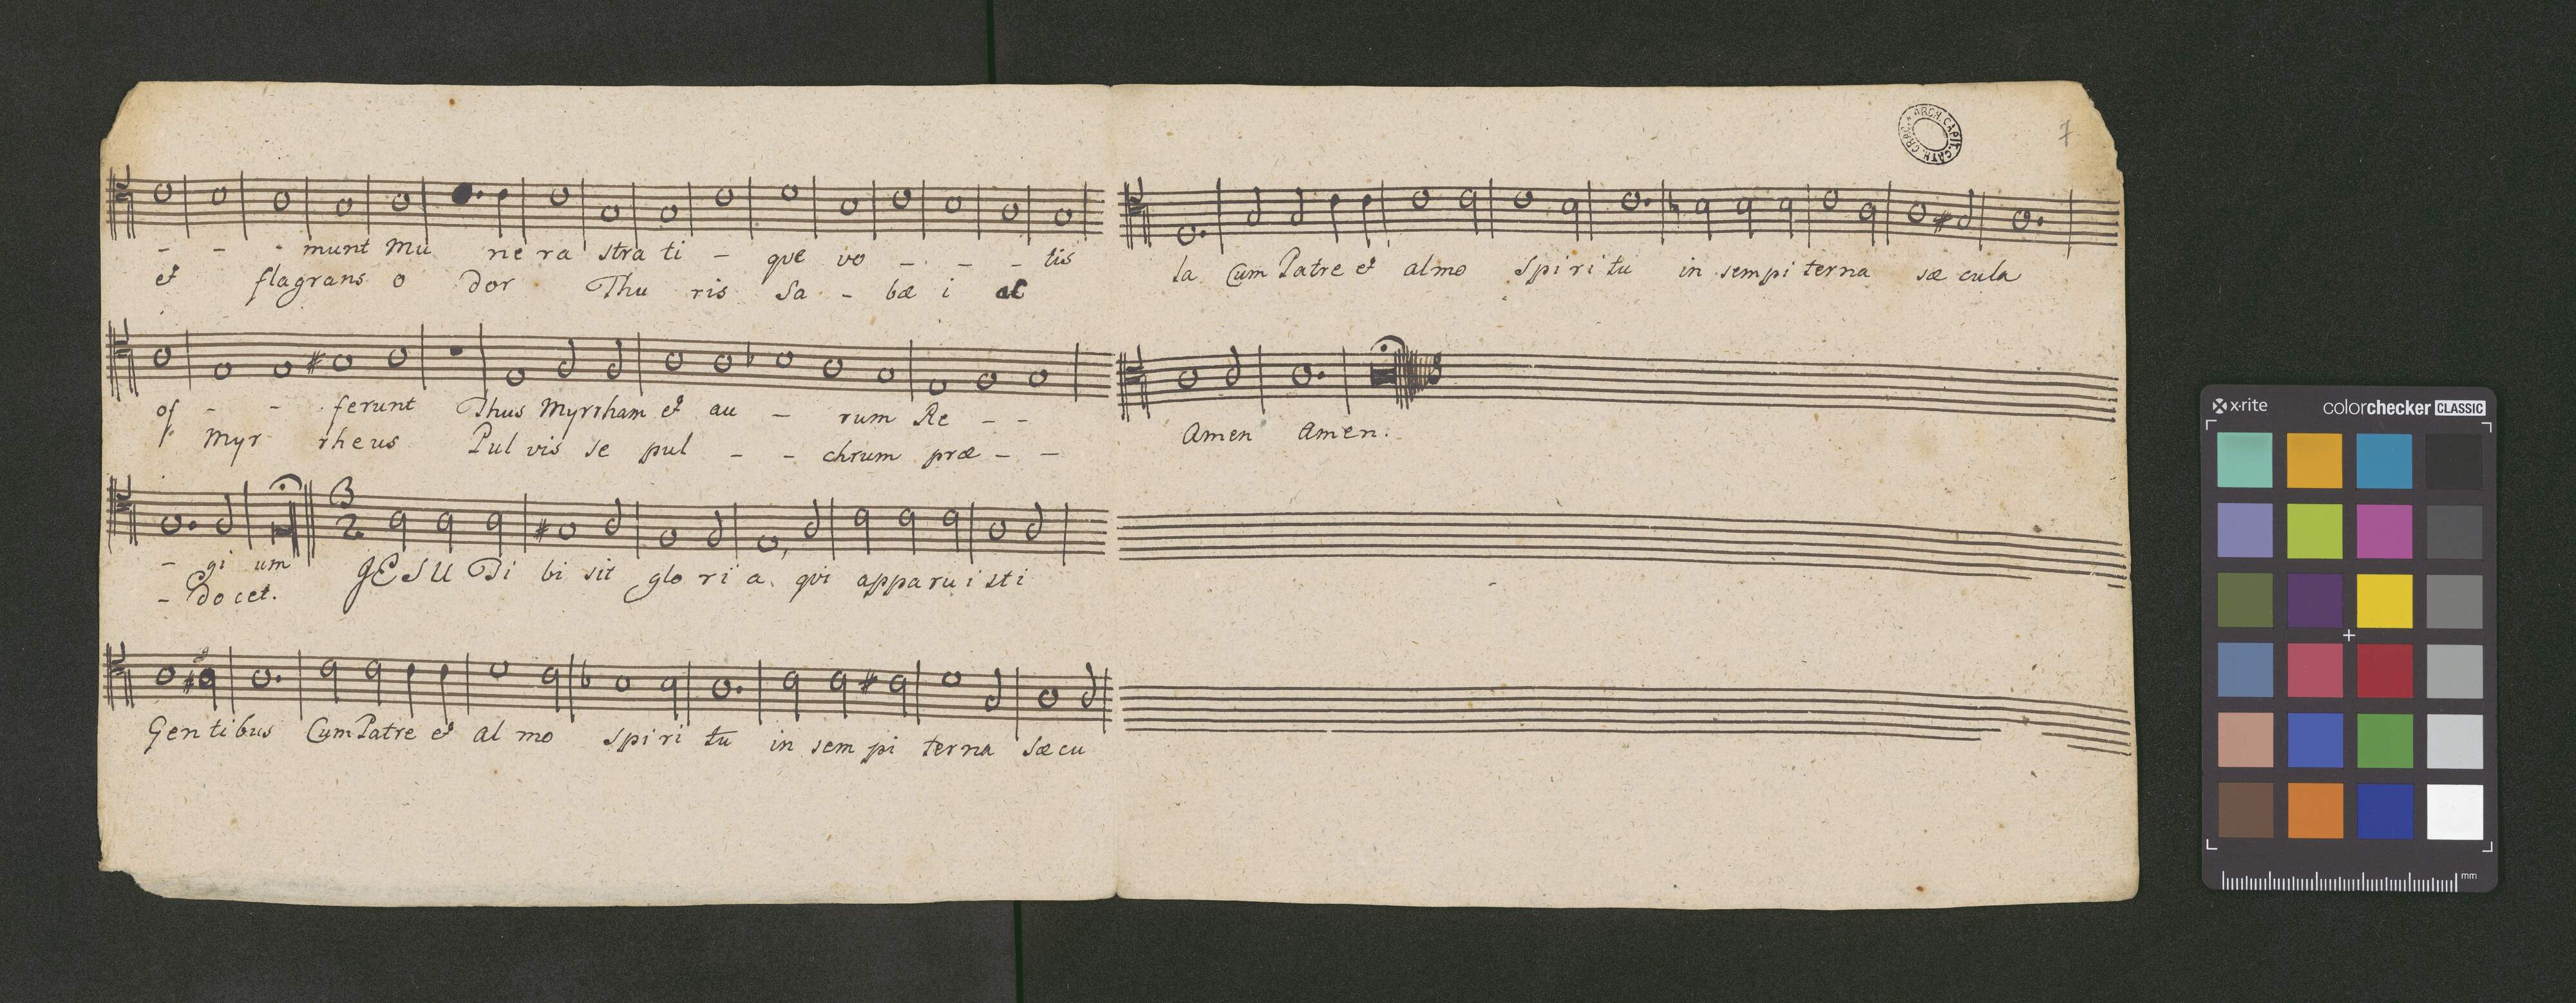 - - - munt Mu nera strati - qve vo - - - tis
et flagrans odor Thuris Sa - bæi ac
of - - ferunt Thus Myrrham et au - rum Re - -
Myrrheus Pulvis sepul - - chrum præ - -
3
2
- gi um JESU Tibi sit gloria, qvi apparuisti
- docet.
Gentibus Cum Patre et almo spiritu in sempiterna sæcu
ARCH. CAPIT. CATH. CRAC.
7
la Cum Patre et almo Spiritu in sempiterna sæcula
Amen Amen.
x-rite colorchecker CLASSIC
mm